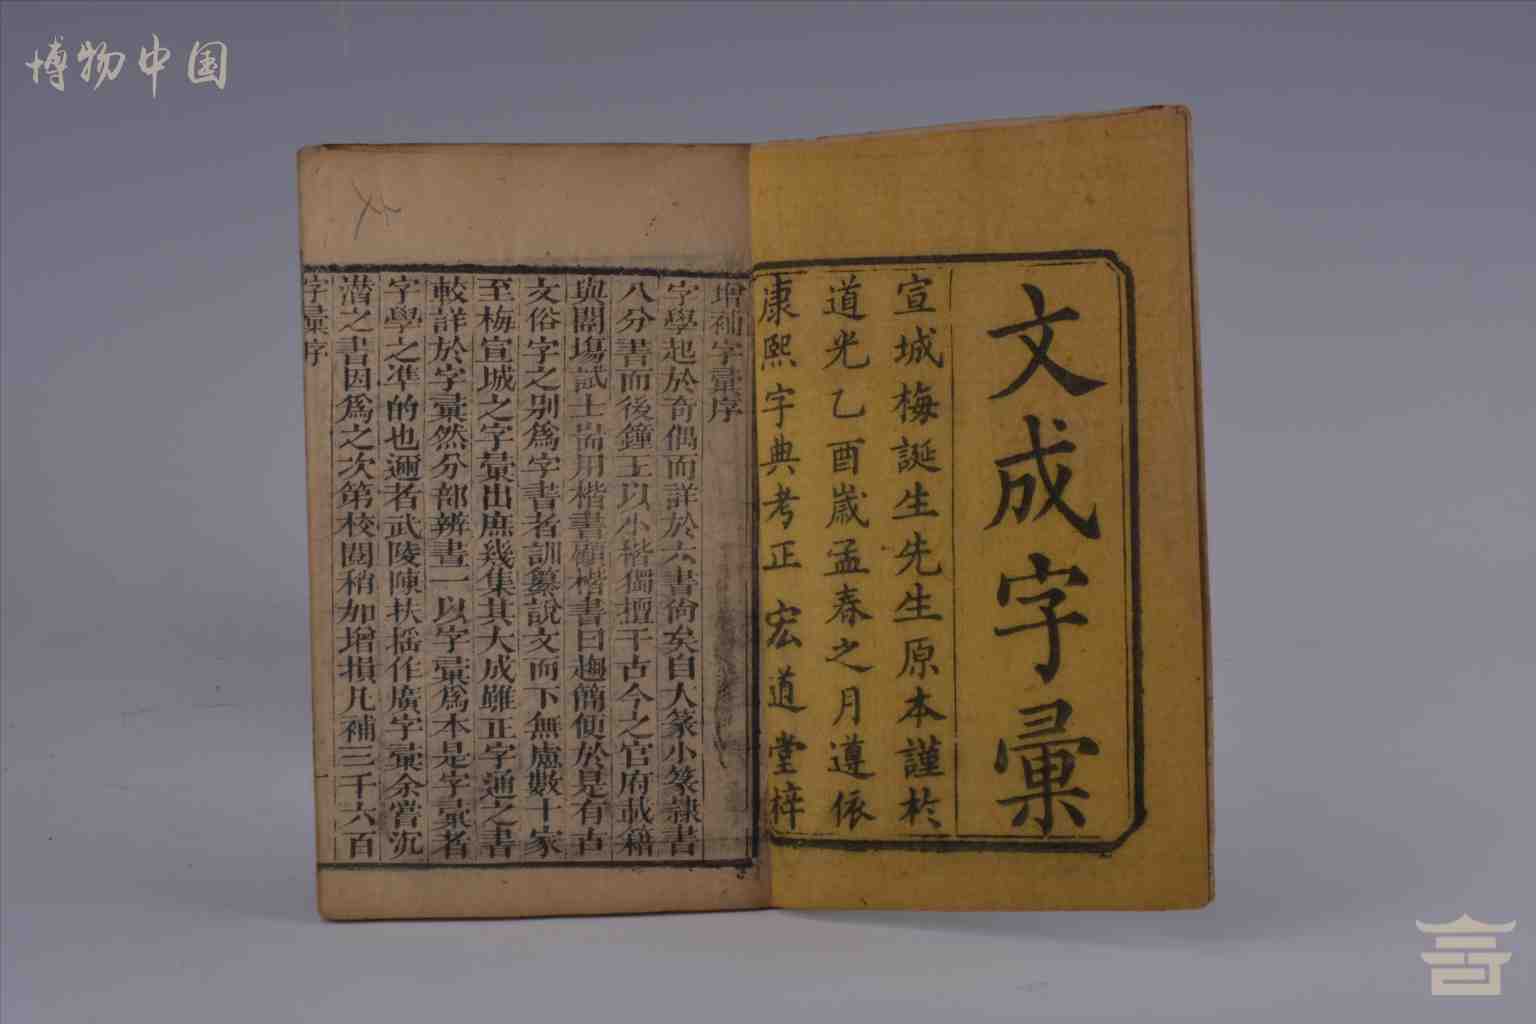 博物中国
文成字彙
宣城梅誕生先生原本謹於
道光乙酉嵗孟春之月遵依
康熙字典考正 宏道堂梓
增補字彙序
字學起於奇偶而詳於六書尚矣自大篆小篆隷書
八分書而後鍾王以小楷獨擅千古今之官府載籍
與闈塲試士耑用楷書顧楷書日趨簡便於是有古
文俗字之别爲字書者訓纂說文而下無慮數十家
至梅宣城之字彙出庶幾集其大成雖正字通之書
較詳於字彙然分部辨畫一以字彙爲本是字彙者
字學之凖的也邇者武陵陳扶摇作廣字彙余嘗沉
潜之書因爲之次第校閲稍加增損凡補三千六百
字彙序
一